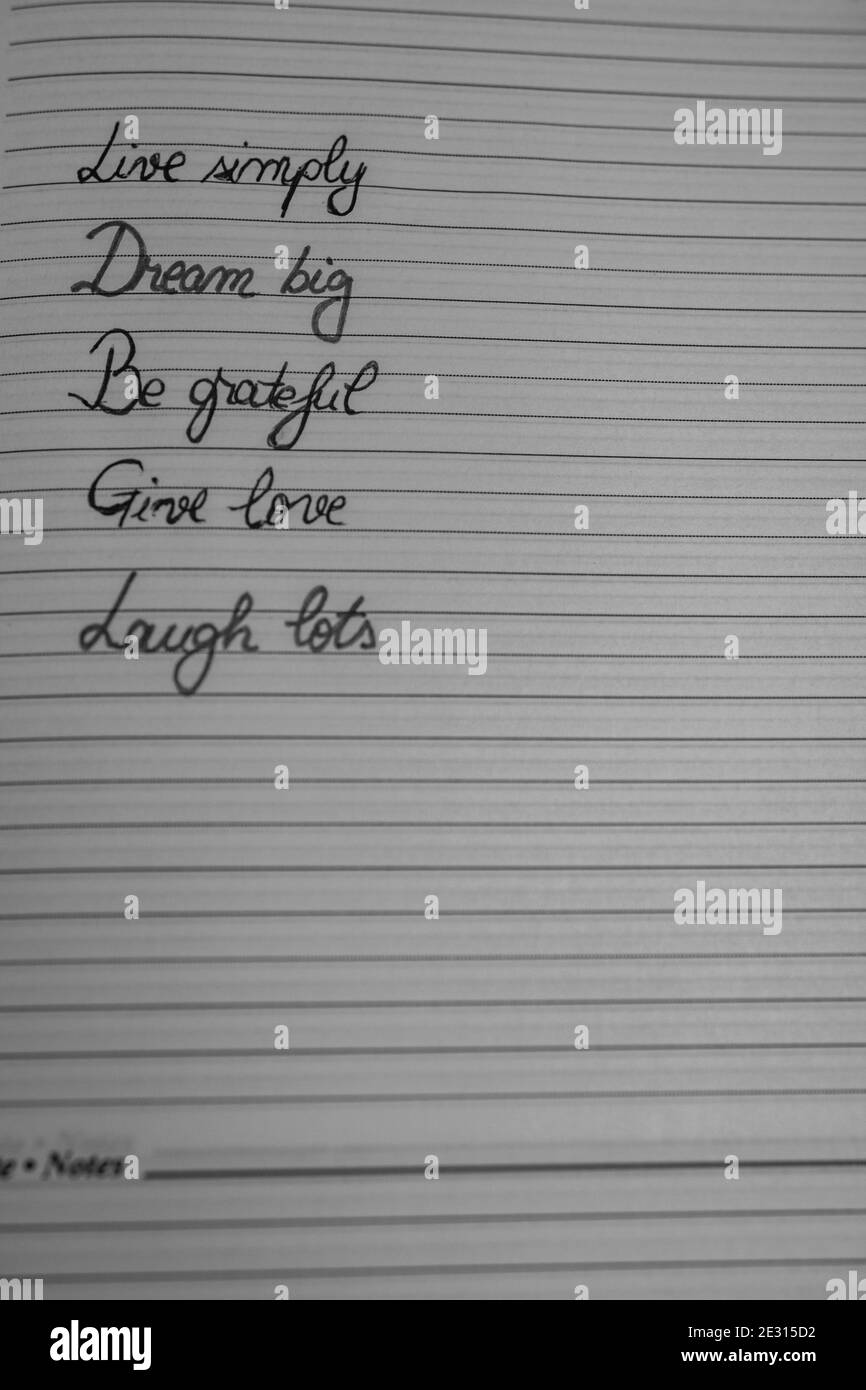 Live simply
Dream big
Be grateful
Give love
Laugh lots
alamy
a
e • Notes
alamy
Image ID: 2E315D2
www.alamy.com